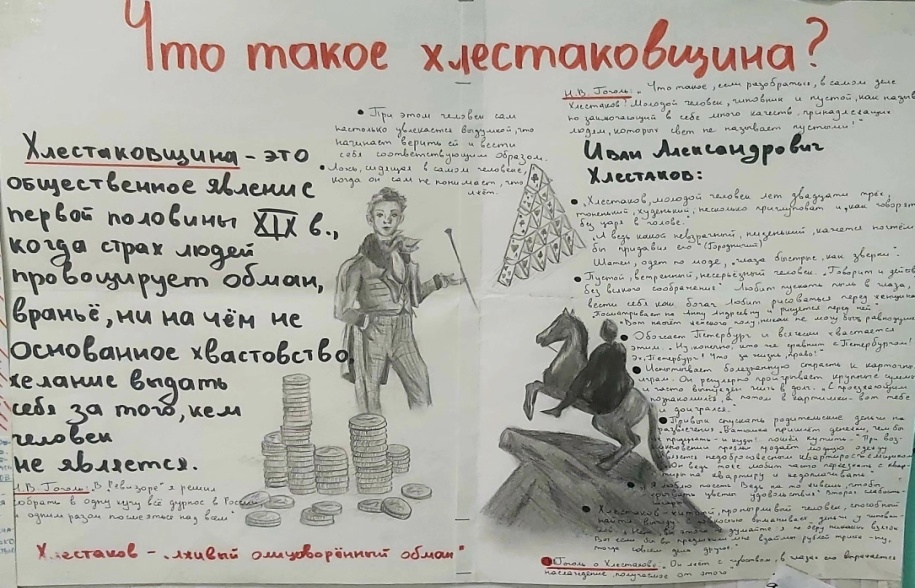 Что такое хлестаковщина?
Хлестаковщина - это
общественное явление
первой половины XIX в.,
когда страх людей
провоцирует обман,
враньё, ни на чём не
основанное хвастовство,
желание выдать
себя за того, кем
человек
не является.
Н.В. Гоголь: "В "Ревизоре" я решил
собрать в одну кучу всё дурное в России
одним разом посмеяться над всем"
Хлестаков - "лживый олицоворённый обман"
При этом человек сам
настолько увлекается выдумкой, что
начинает верить ей и вести
себя соответствующим образом.
Ложь, сидящая в самом человеке,
когда он сам не понимает, что
лжёт.
Н.В. Гоголь: "Что такое, если разобрать, в самом деле
Хлестаков? Молодой человек, чиновник и пустой, как назыв
но заключающий в себе много качеств, принадлежащих
людям, которых свет не называет пустыми."
Иван Александрович
Хлестаков:
"Хлестаков, молодой человек лет двадцати трёх,
тоненький, худенький; несколько приглуповат и, как говорят
без царя в голове.
"А ведь какой невзрачный, низенький, кажется ногтем
бы придавил его" (Городничий)
Шатен, одет по моде, "глаза быстрые, как зверки".
Пустой, ветренный, несерьёзный человек. "Говорит и дейст
без всякого соображения" Любит пускать пыль в глаза,
вести себя как богач. Любит рисоваться перед женщина
"посматривает на Анну Андреевну и рисуется перед ней"
Обожает Петербург и всячески хвастается
этим. "Ну, конечно, кто же сравнит с Петербургом!
Эх, Петербург! Что за жизнь, право!"
Испытывает болезненную страсть к карточным
играм. Он регулярно проигрывает крупные суммы
и часто вынужден жить в долг. "С проезжающим
познакомился, а потом в картишки - вот тебе
и доигрался."
Привык спускать родительские деньги на
развлечения. "Батюшка пришлёт денежки, чем бы
их придержать - и куды! пошёл кутить"
"Я люблю поесть. Ведь на то живёшь, чтобы
срывать цветы удовольствия"
Хлестаков - хитрый, пронырливый человек, способный
Гоголь о Хлестакове: "Он лжёт с чувством, в глазах его выражается
наслаждение, получаемое от этого"